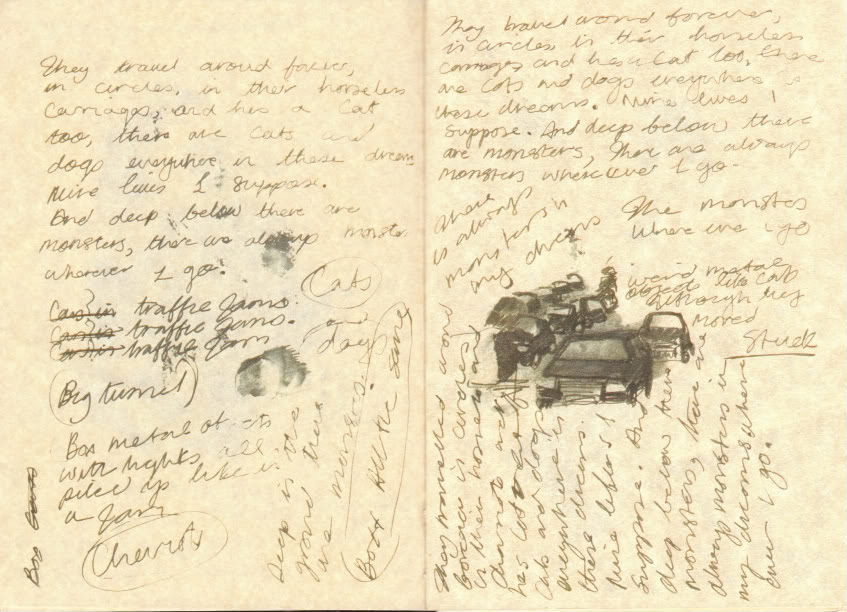 They travel around forever,
in circles, in their horseless
carriages, and has a cat
too, there are cats and
dogs everywhere in these dreams
Nine lives I suppose.
And deep below there are
monsters, there are always monsters
wherever I go.
Cats
in traffic Jams.
traffic Jams.
traffic Jam
and
dogs
Big tunnel
Box metal
with lights all
piled up like
a Jam
Chariots
Box
deep
there
are monsters
They travel around forever,
in circles in their horseless
carriages and has a Cat too, there
are Cats and dogs everywhere in
these dreams. Nine lives I
suppose. And deep below there
are monsters, there are always
monsters wherever I go.
there
is always
monsters in
my dreams
The monsters
where ever I go
weird metal
objects like Cats
although they
moved
Stuck
They travelled around
in circles
in their horseless
has
Cats and dogs
everywhere in
these dreams.
Nine
suppose. And
deep below there
monsters, there are
always monsters in
my dreams where
ever I go.